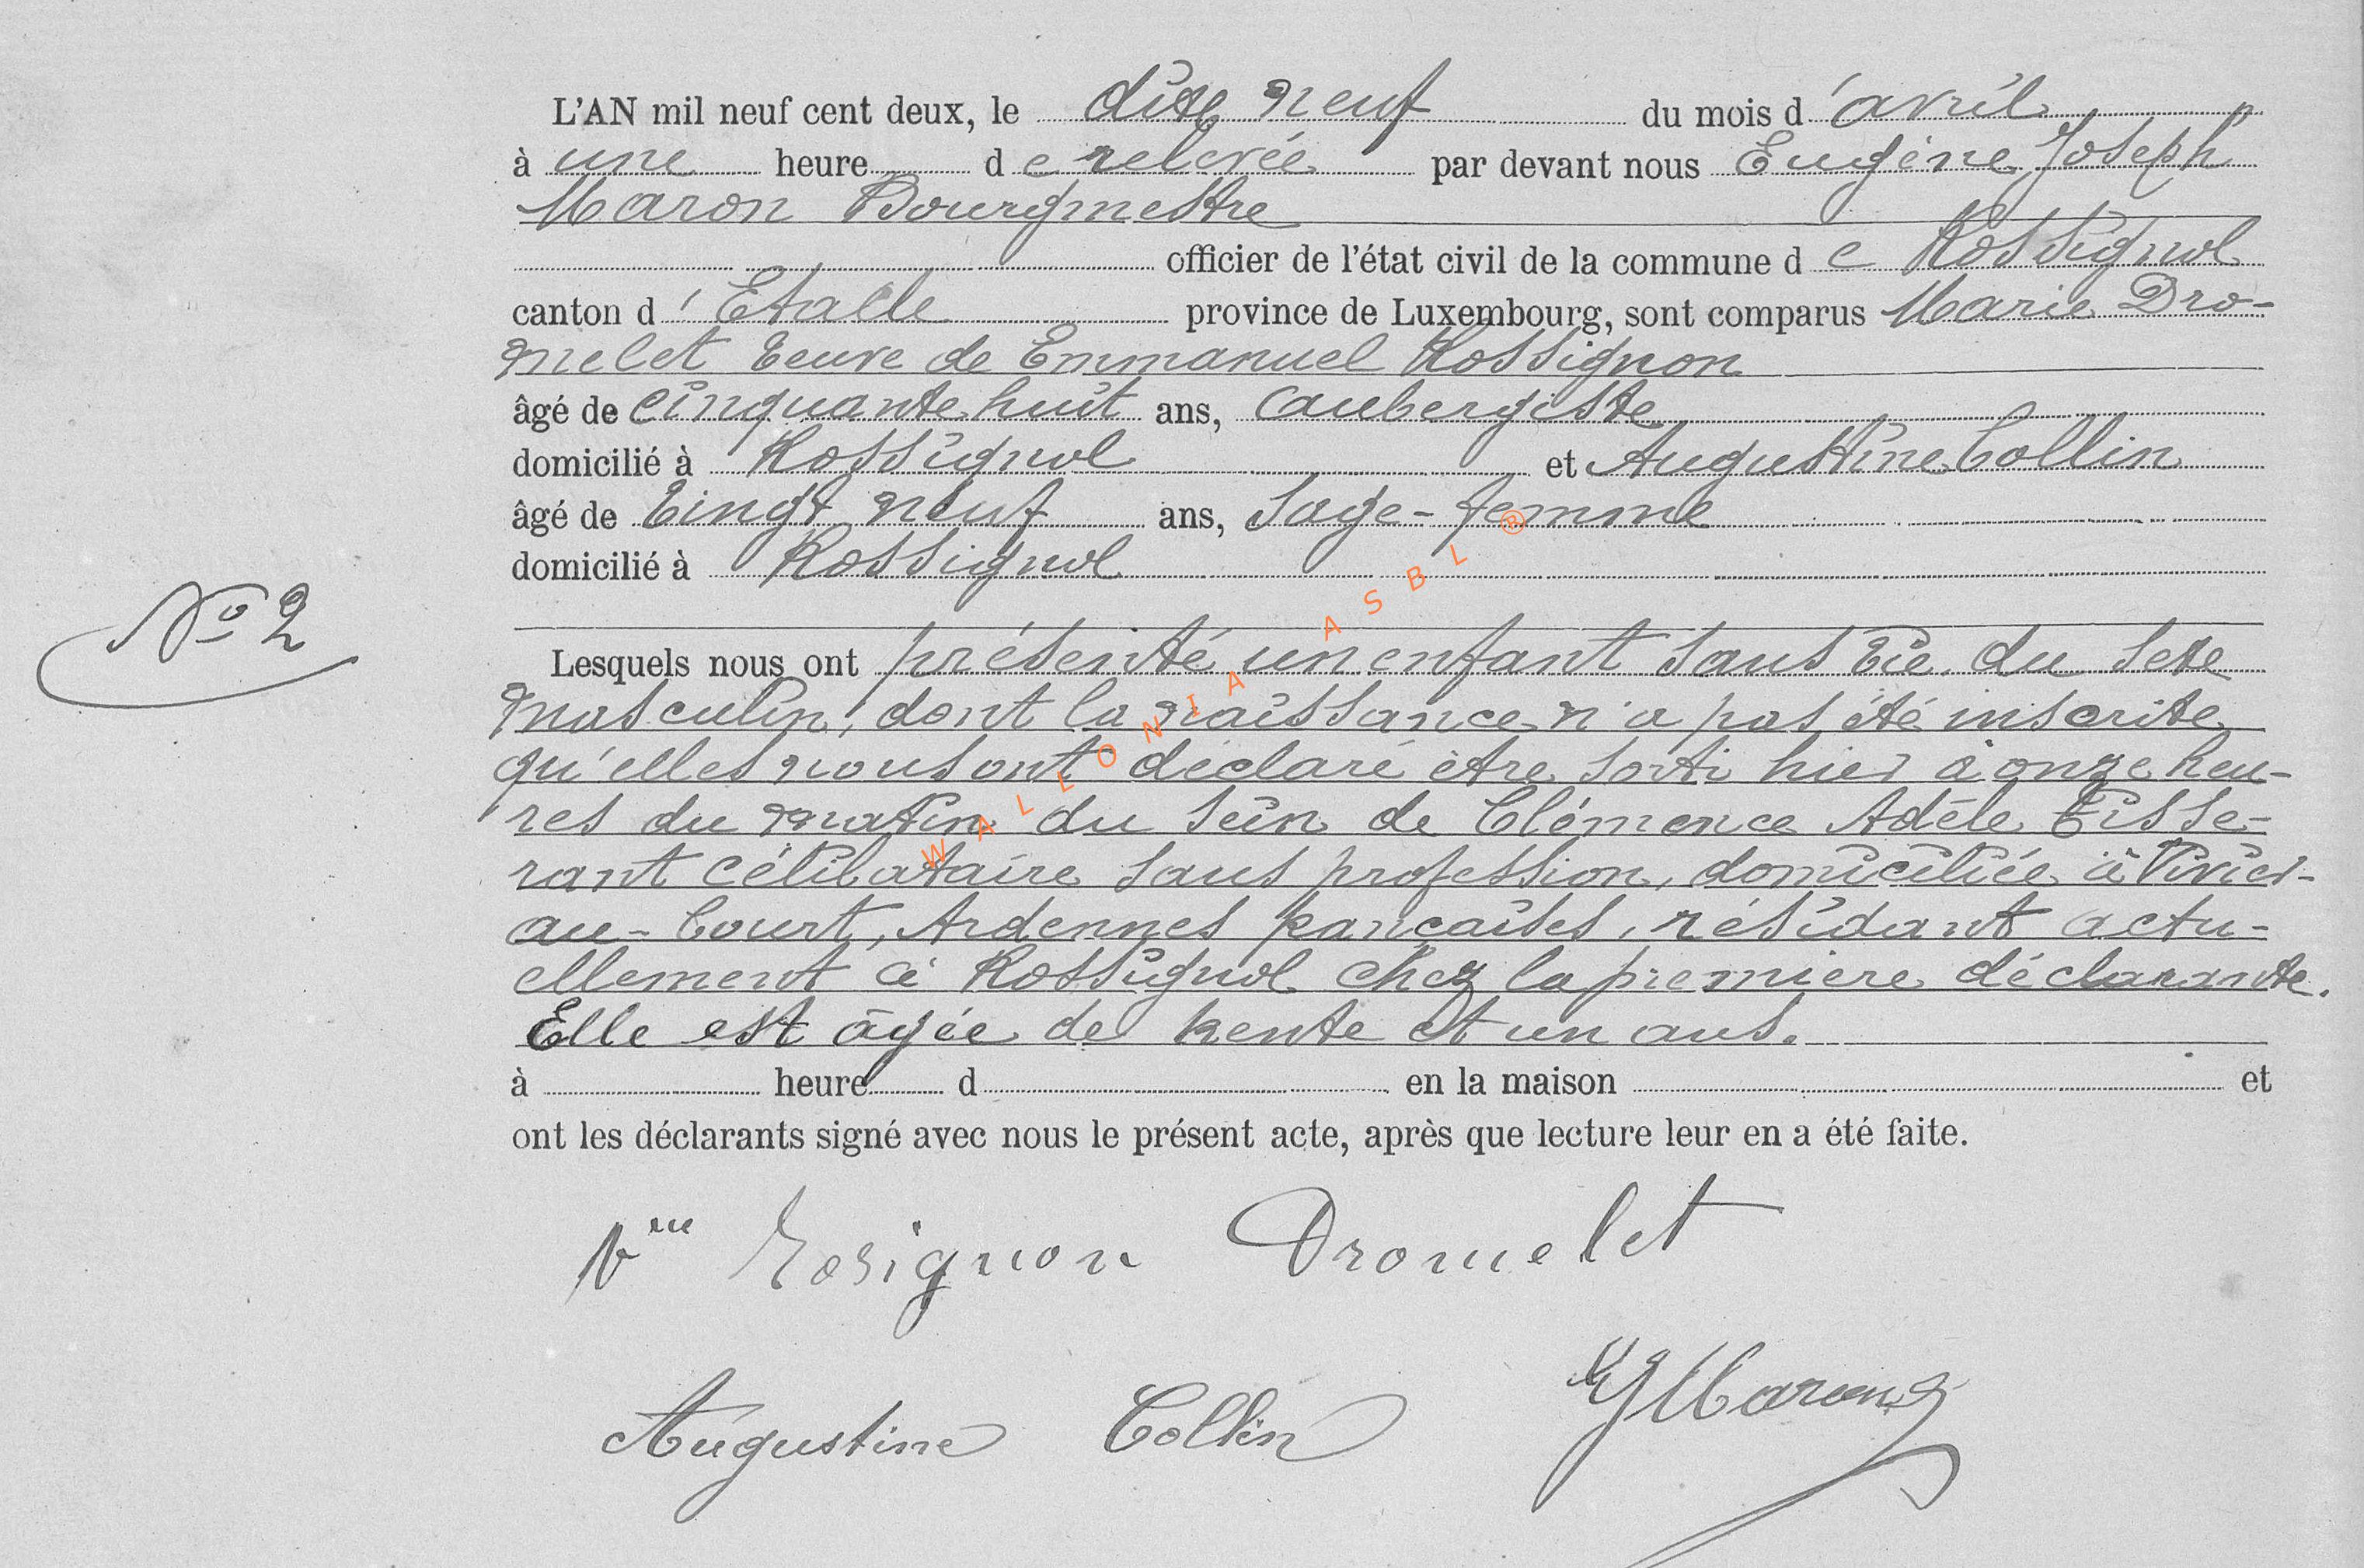 L'AN mil neuf cent deux, le dix neuf du mois d'avril
à une heure de relevée par devant nous Eugène Joseph
Maron Bourgmestre
officier de l'état civil de la commune de Rossignol
canton d'Etalle province de Luxembourg, sont comparus Marie Dro-
melet veuve de Emmanuel Rossignon
âgé de cinquante huit ans, aubergiste
domicilié à Rossignol et Augustine Collin
âgé de vingt neuf ans, Sage-femme
domicilié à Rossignol
N° 2
Lesquels nous ont présenté un enfant sans vie du sexe
masculin, dont la naissance n'a pas été inscrite
qu'elles nous ont déclaré être sorti hier à onze heu-
res du matin du sein de Clémence Adèle Tisse-
rant célibataire sans profession, domiciliée à Vivier-
au-Court, Ardennes françaises, résidant actu-
ellement à Rossignol chez la première déclarante.
Elle est âgée de trente et un ans.
à heure d en la maison et
ont les déclarants signé avec nous le présent acte, après que lecture leur en a été faite.
Vve Rosignon Dromelet
Augustine Collin EJMaron
WALLONIA ASBL ®